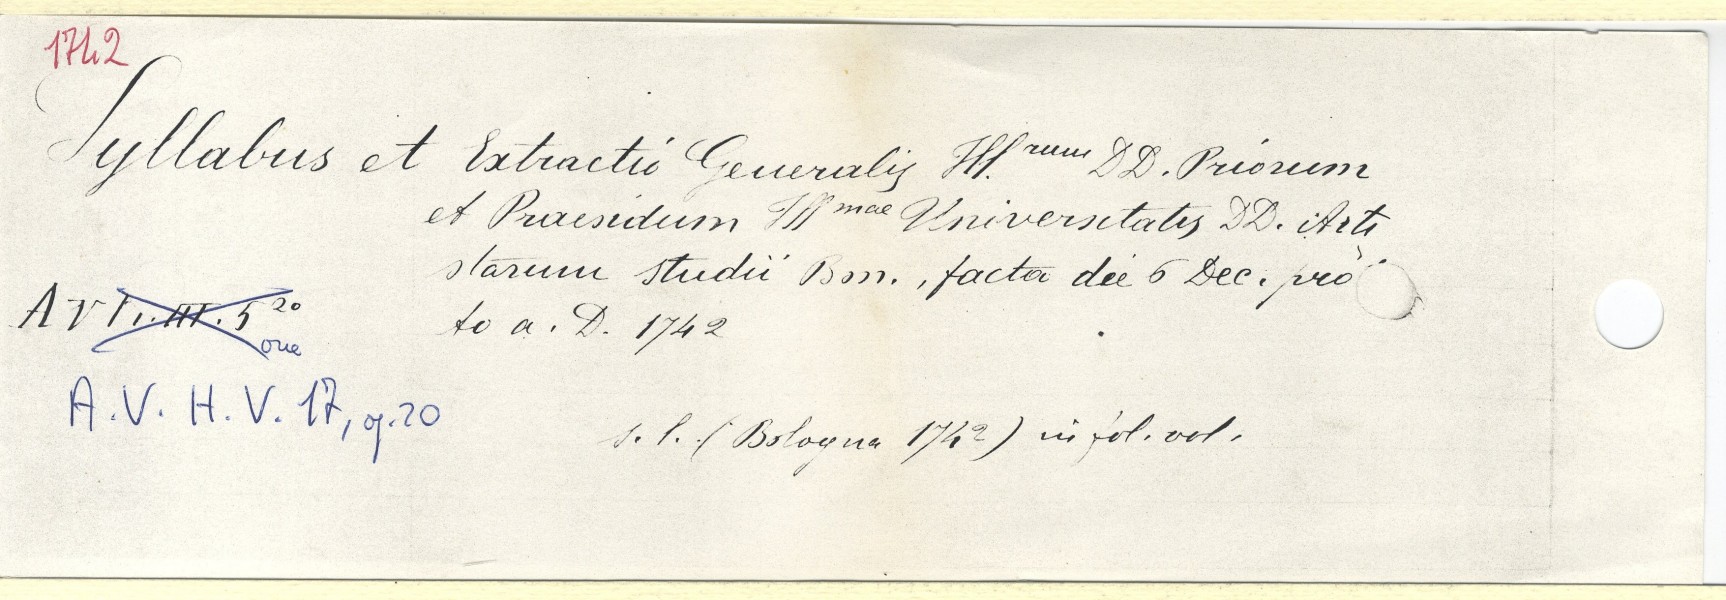 1742
Syllabus et Extractio Generalis Ill.rum DD. Priorum
et Praesidum Illmae Universitatis DD. Arti
starum studii Bon., facta die 6 Dec. pro
to a. D. 1742
A V
A.V. H.V. 17, op. 20
s. l. (Bologna 1742) in fol. vol.